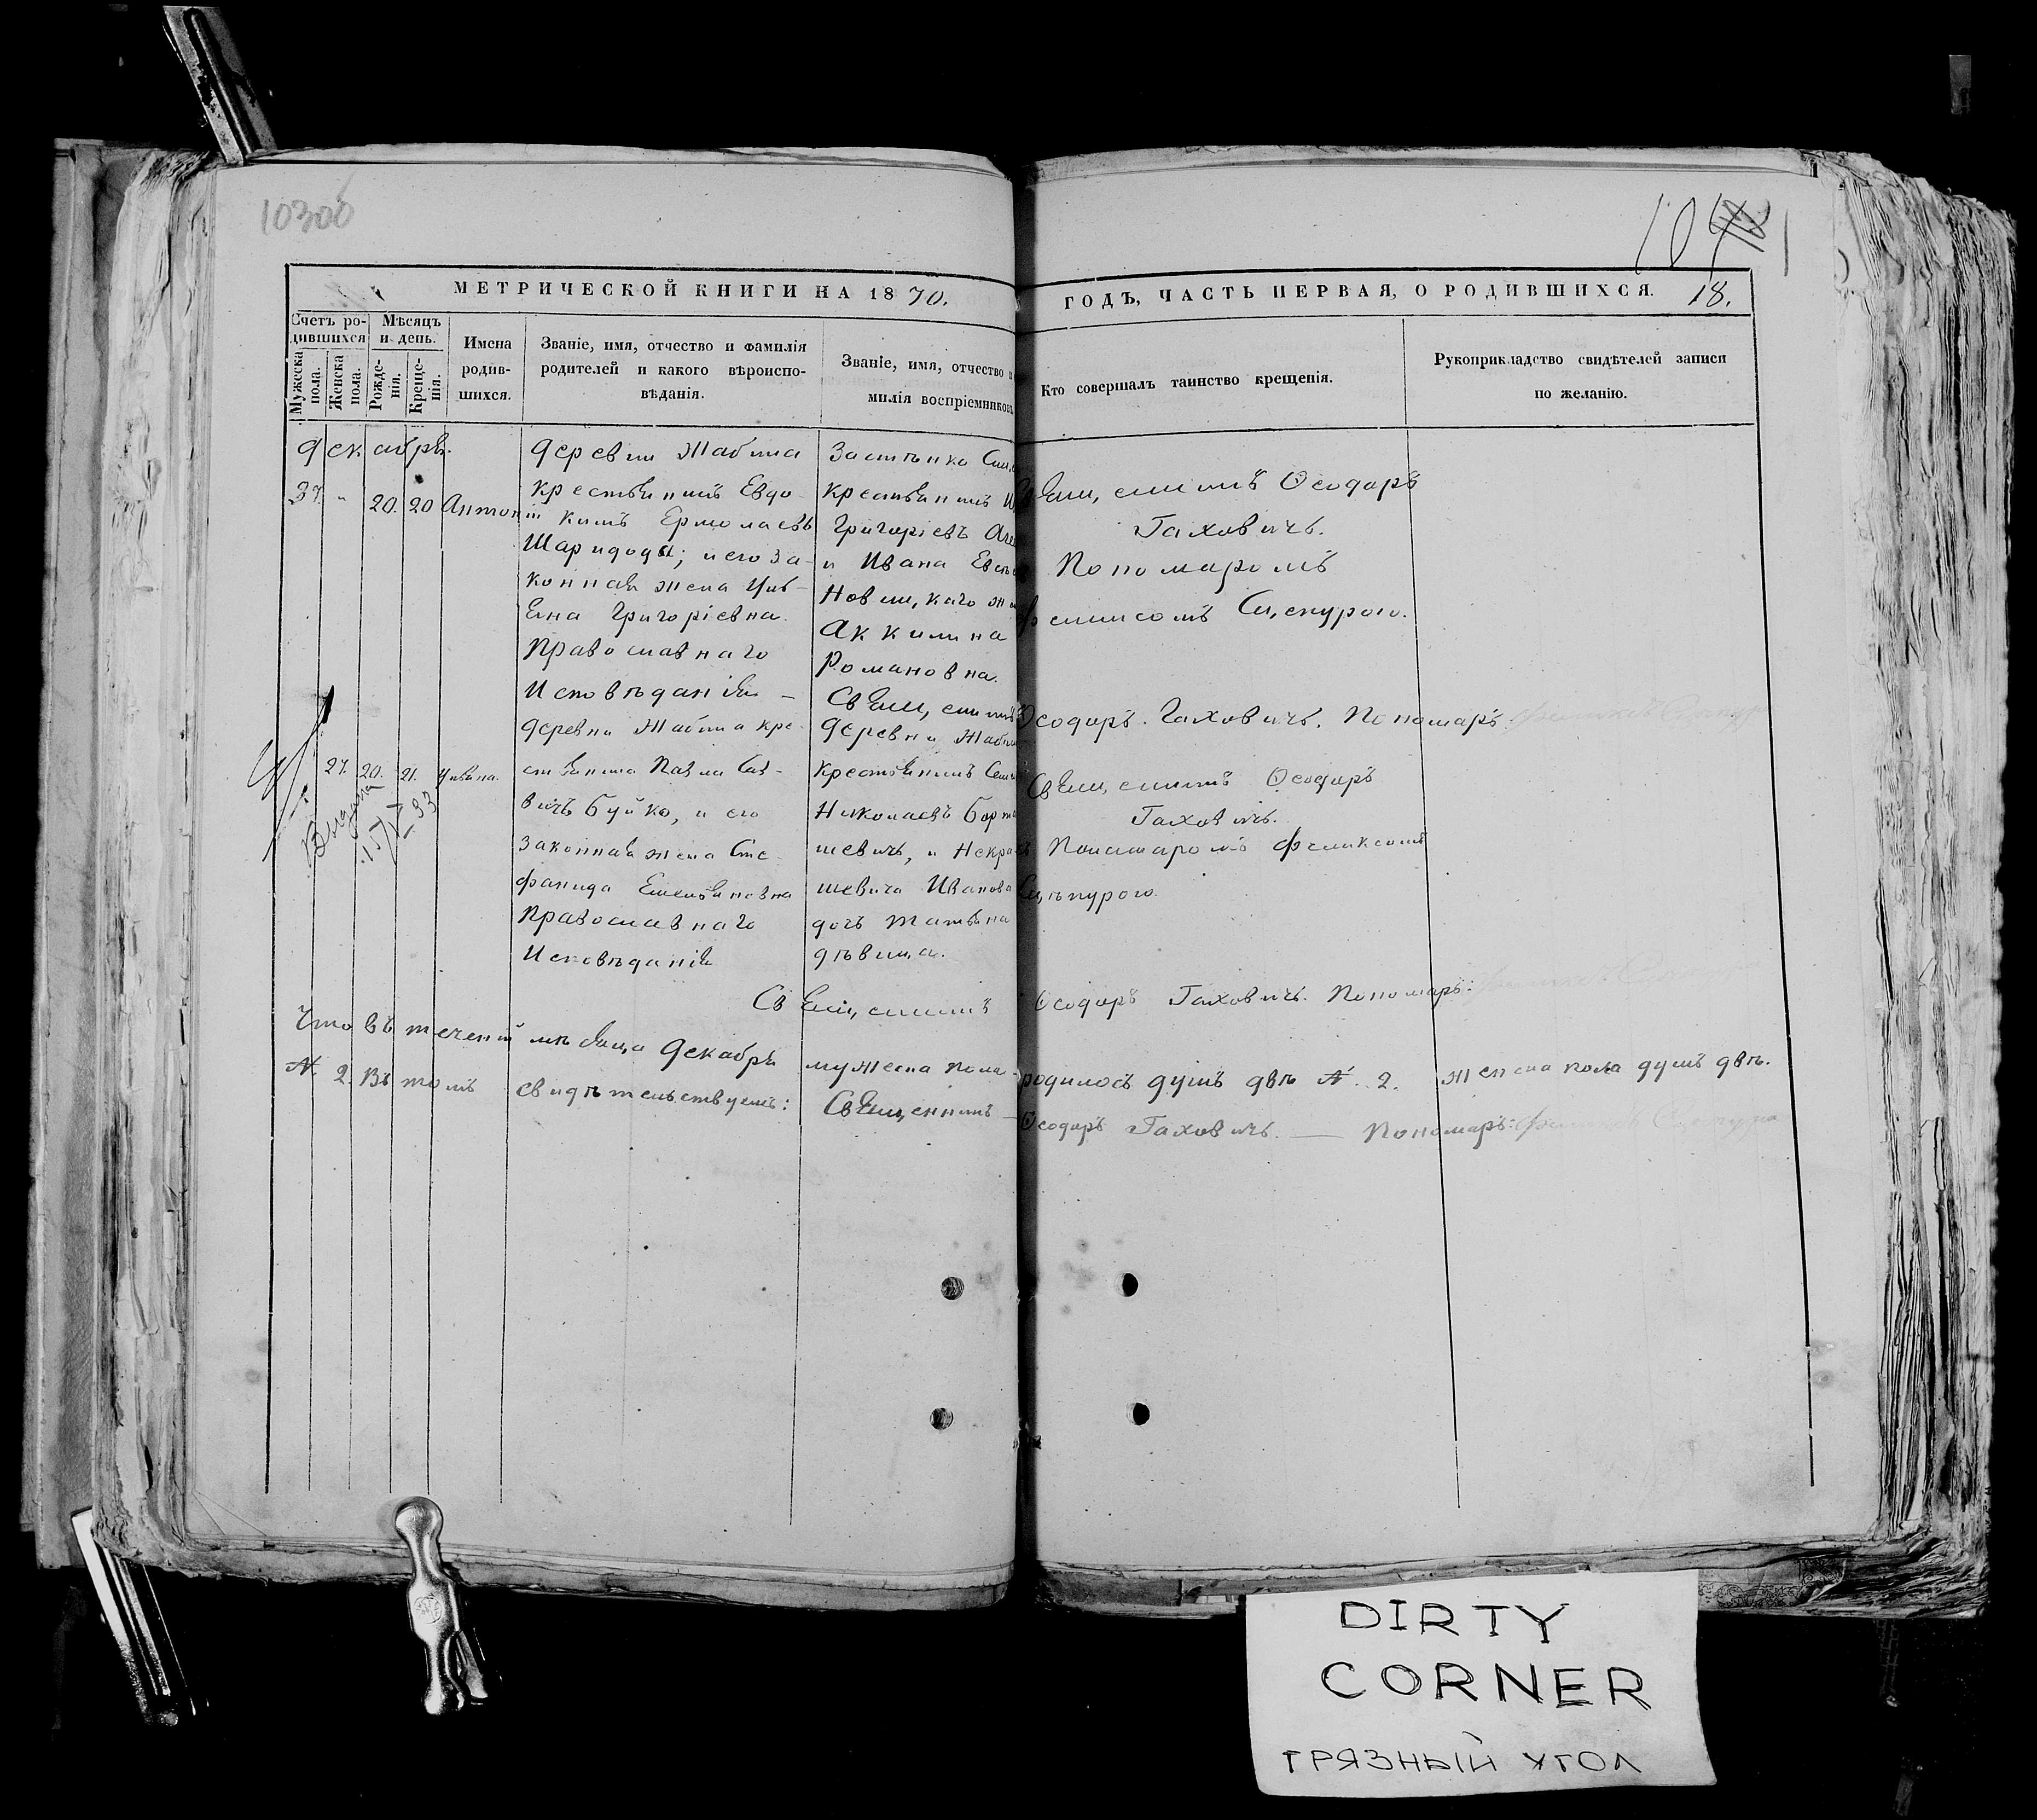 10300
МЕТРИЧЕСКОЙ КНИГИ НА 1870.
ГОДЪ, ЧАСТЬ ПЕРВАЯ, О РОДИВШИХСЯ.
18.
Счетъ родившихся
Мужеска пола.
Женска пола.
Мѣсяцъ и день.
Рожденія.
Крещенія.
Имена родившихся.
Званіе, имя, отчество и фамилія
родителей и какого вѣроиспо-
вѣданія.
Званіе, имя, отчество и
милія воспріемниковъ
Кто совершалъ таинство крещенія.
Рукоприкладство свидѣтелей записи
по желанію.
Декабрь.
20. 20 Антоній
деревни Жабина
крестьянинъ Евдо-
кимъ Ермолаевъ
Шаридода; и его за-
конная жена Уль-
яна Григоріевна
Православнаго
Исповѣданія
Застѣнка
крестьянинъ
Григоріевъ
и Ивана
жена
Аккилина
Романовна.
Священникъ Ѳеодоръ
Гаховичъ.
Пономаромъ
Феликсомъ Сцепурою.
Священникъ Ѳеодоръ Гаховичъ. Пономарь:
27. 20. 21. Ульяна.
Выдана
деревни Жабина кре-
стьянина Павла Сав-
вичъ Буйко, и его
законная жена Сте-
фанида Емельяновна
Православнаго
Исповѣданія
деревни
крестьянинъ
Николаевъ
шевичъ, и
шевича Иванова
дочь Татьяна
дѣвица.
Священникъ Ѳеодоръ
Гаховичъ.
Пономаромъ Феликсомъ
Сцѣпурою.
Священникъ Ѳеодоръ Гаховичъ. Пономарь:
Что въ теченій мѣсяца Декабрь мужеска пола родилось душъ двѣ №. 2. женска пола душъ двѣ.
№. 2. Въ томъ свидѣтельствуемъ: Священникъ — Ѳеодоръ Гаховичъ. — Пономарь:
DIRTY
CORNER
ГРЯЗНЫЙ УГОЛ